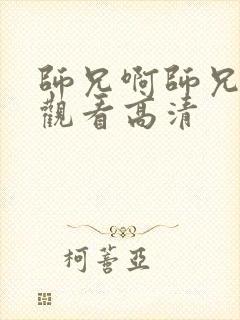 師兄啊師兄
觀看高清
柯萱亞